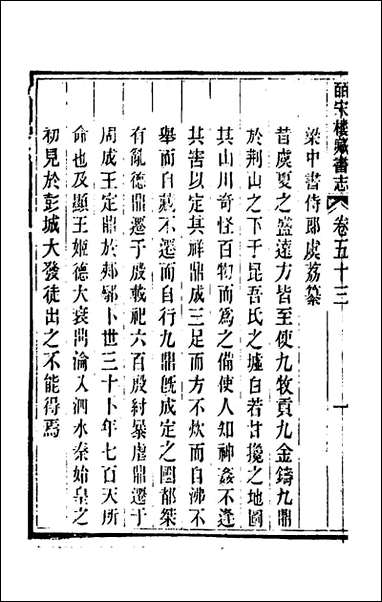 皕宋樓藏書志 卷五十三 一
梁中書侍郎虞荔纂
昔虞夏之盛遠方皆至使九牧貢九金鑄九鼎
於荆山之下于昆吾氏之墟白若甘攙之地圖
其山川奇怪百物而為之備使人知神姦不逢
其害以定其祥鼎成三足而方不炊而自沸不
舉而自藏不遷而自行九鼎旣成定之國都桀
有亂德鼎遷于殷載祀六百殷紂暴虐鼎遷于
周成王定鼎於郟鄏卜世三十卜年七百天所
命也及顯王姬德大衰鼎淪入泗水秦始皇之
初見於彭城大發徒出之不能得焉